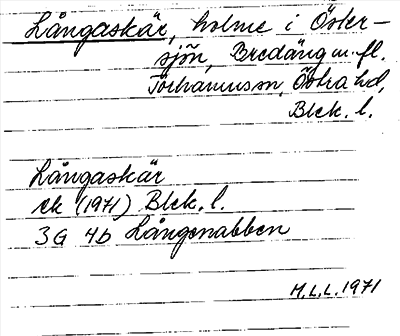 Långaskär, holme i Öster-
sjön, Bredäng m. fl.
Torhamns sn, Östra hd,
Blek. l.
Långaskär
ek (1971) Blek. l.
3G 4b Långenabben
M.L.L. 1971